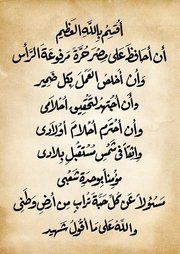 أقسم بالله العظيم
أن أحافظ على مصر حرة مرفوعة الرأس
وأن أخلص العمل بكل ضمير
وأن أجتهد لتحقيق أحلامى
وأن أحترم أحلام أولادى
واثقاً فى شمس مستقبل بلادى
مؤمناً بوحدة شعبى
مسئولاً عن كل حبة تراب من أرض وطنى
والله على ما أقول شهيد